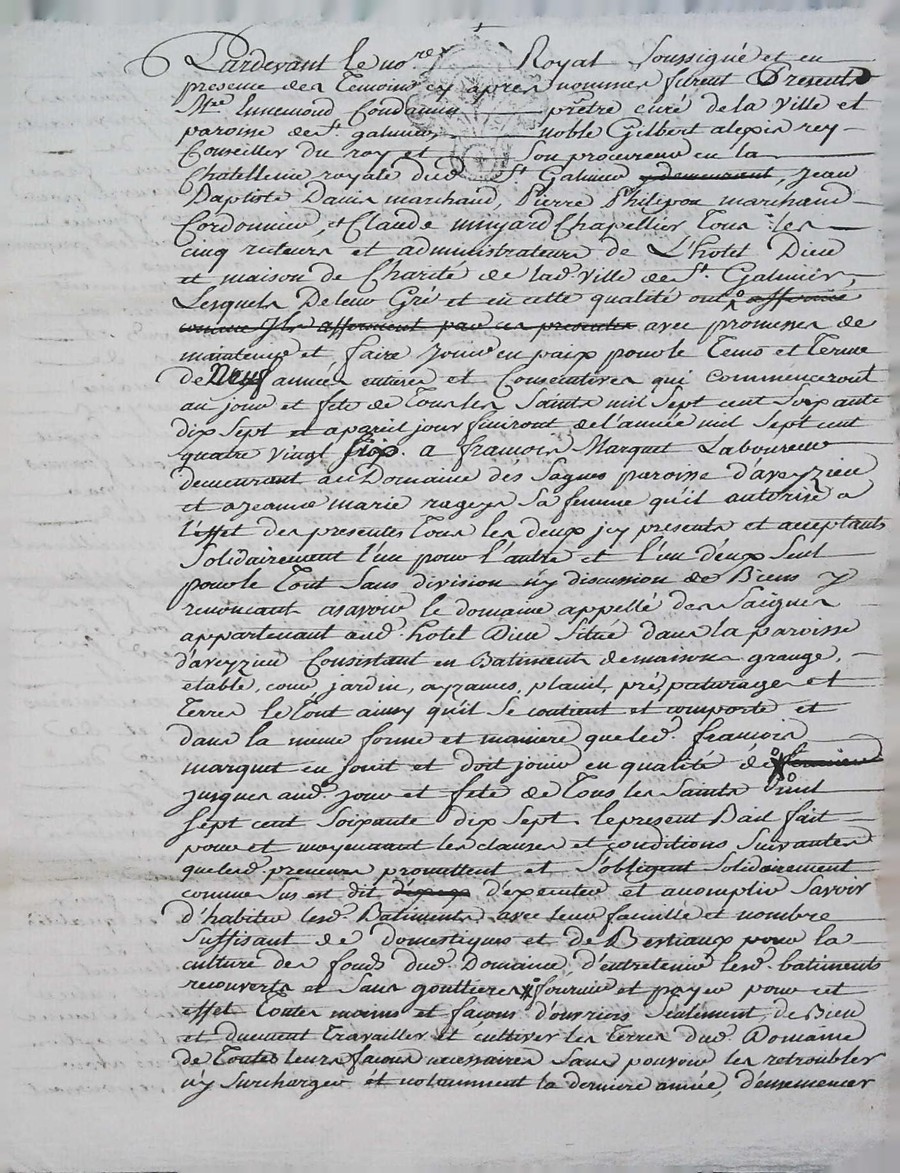 Pardevant le no.re Royal Soussigné et en
presence des Temoins cy apres nommes furent Presents
M.re Ennemond prêtre curé de la Ville et
paroisse de S.t galmier noble Gilbert alexis rey
Conseiller du roy et Son procureur en la
Chatellenie royale dud. S.t Galmier y demeurant, Jean
Baptiste David marchand, Pierre Philipon marchand
Cordonnier, et Claude minjard Chapellier Tous les
cinq recteurs et administrateurs de L'hotel Dieu
et maison de Charité de lad. Ville de S.t Galmier,
Lesquels De leur Gré et en cette qualité ont affermé
comme Ils afferment par ces presentes avec promesses de
maintenir et faire Jouir en paix pour le Tems et Terme
de Neuf années entieres et Consecutives qui commenceront
au jour et fete de Tous les Saints mil Sept cent Soixante
dix Sept et apareil jour finiront de l'année mil Sept cent
quatre vingt Six. a francois Marquet Laboureur
demeurant au Domaine des Sagnes paroisse d'aveyzieu
et a jeanne marie Sa femme qu'il autorise a
l'effet des presentes Tous les deux icy presents et acceptants
Solidairement l'un pour l'autre et l'un d'eux Seul
pour le Tout Sans division n'y discussion de Biens y
renoncant asavoir le domaine appellé des Saignes
appartenant aud. hotel Dieu Situé dans la paroisse
d'aveyzieu Consistant en Batiments de maison, grange,
etable, cour, jardin, prés, paturages et
Terres le Tout ainsy qu'il Se contient et comporte et
dans la meme forme et maniere que led. francois
marquet en jouit et doit jouir en qualité de fermier
jusques aud. jour et fete de Tous les Saints mil
Sept cent Soixante dix Sept. le present Bail fait
pour et moyennant les clauses et conditions Suivantes
que led. preneurs promettent et S'obligent Solidairement
comme Sus est dit d'executer et accomplir Savoir
d'habiter lesd. Batiments avec leur famille et nombre
Suffisant de domestiques et de Bestiaux pour la
culture des fonds dud. Domaine, d'entretenir lesd. batiments
recouverts et Sans gouttieres fournir et payer pour cet
effet Toutes mains et façons d'ouvriers Seulement, de Bien
et duement Travailler et cultiver les Terres dud. Domaine
de Toutes leurs façons necessaires Sans pouvoir les retroubler
n'y Surcharger et notamment la derniere année, d'ensemencer